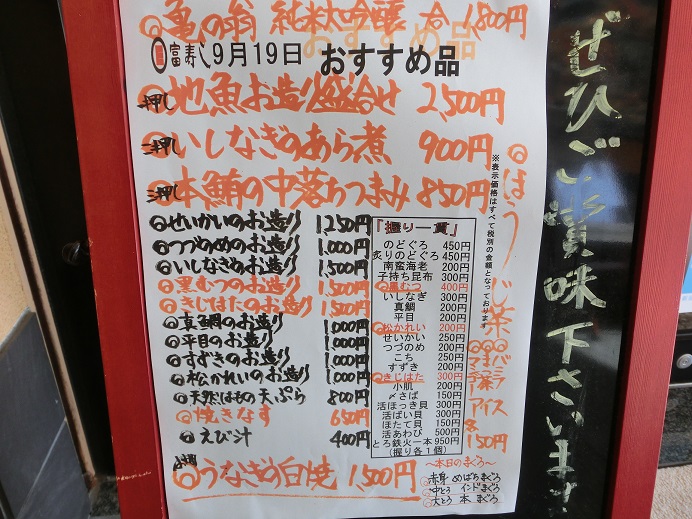 亀の翁 純米大吟醸 一合 1,800円
富寿し 9月19日 おすすめ品
一押し 地魚お造り盛合せ 2,500円
二押し いしなぎのあら煮 900円
三押し 本鮪の中落ちつまみ 850円
せいかいのお造り 1250円
つづのめのお造り 1,000円
いしなぎのお造り 1,500円
黒むつのお造り 1,500円
きじはたのお造り 1,500円
真鯛のお造り 1,000円
平目のお造り 1,000円
すずきのお造り 1,000円
松かれいのお造り 1,000円
天然はもの天ぷら 800円
焼きなす 650円
えび汁 400円
うなぎの白焼 1,500円
『握り一貫』
のどぐろ 450円
炙りのどぐろ 450円
南蛮海老 200円
子持ち昆布 300円
黒むつ 400円
いしなぎ 300円
真鯛 200円
平目 200円
松かれい 200円
せいかい 250円
つづのめ 250円
こち 250円
すずき 200円
きじはた 300円
小肌 200円
〆さば 150円
活ほっき貝 300円
活ばい貝 300円
ほたて貝 150円
活あわび 500円
とろ鉄火一本 950円
(握り各1個)
※表示価格はすべて税別の金額となっております
ほうじ茶
バニラ
抹茶
アイス
各150円
～本日のまぐろ～
赤身 めばちまぐろ
中とろ インドまぐろ
大とろ 本まぐろ
ぜひご賞味下さいませ